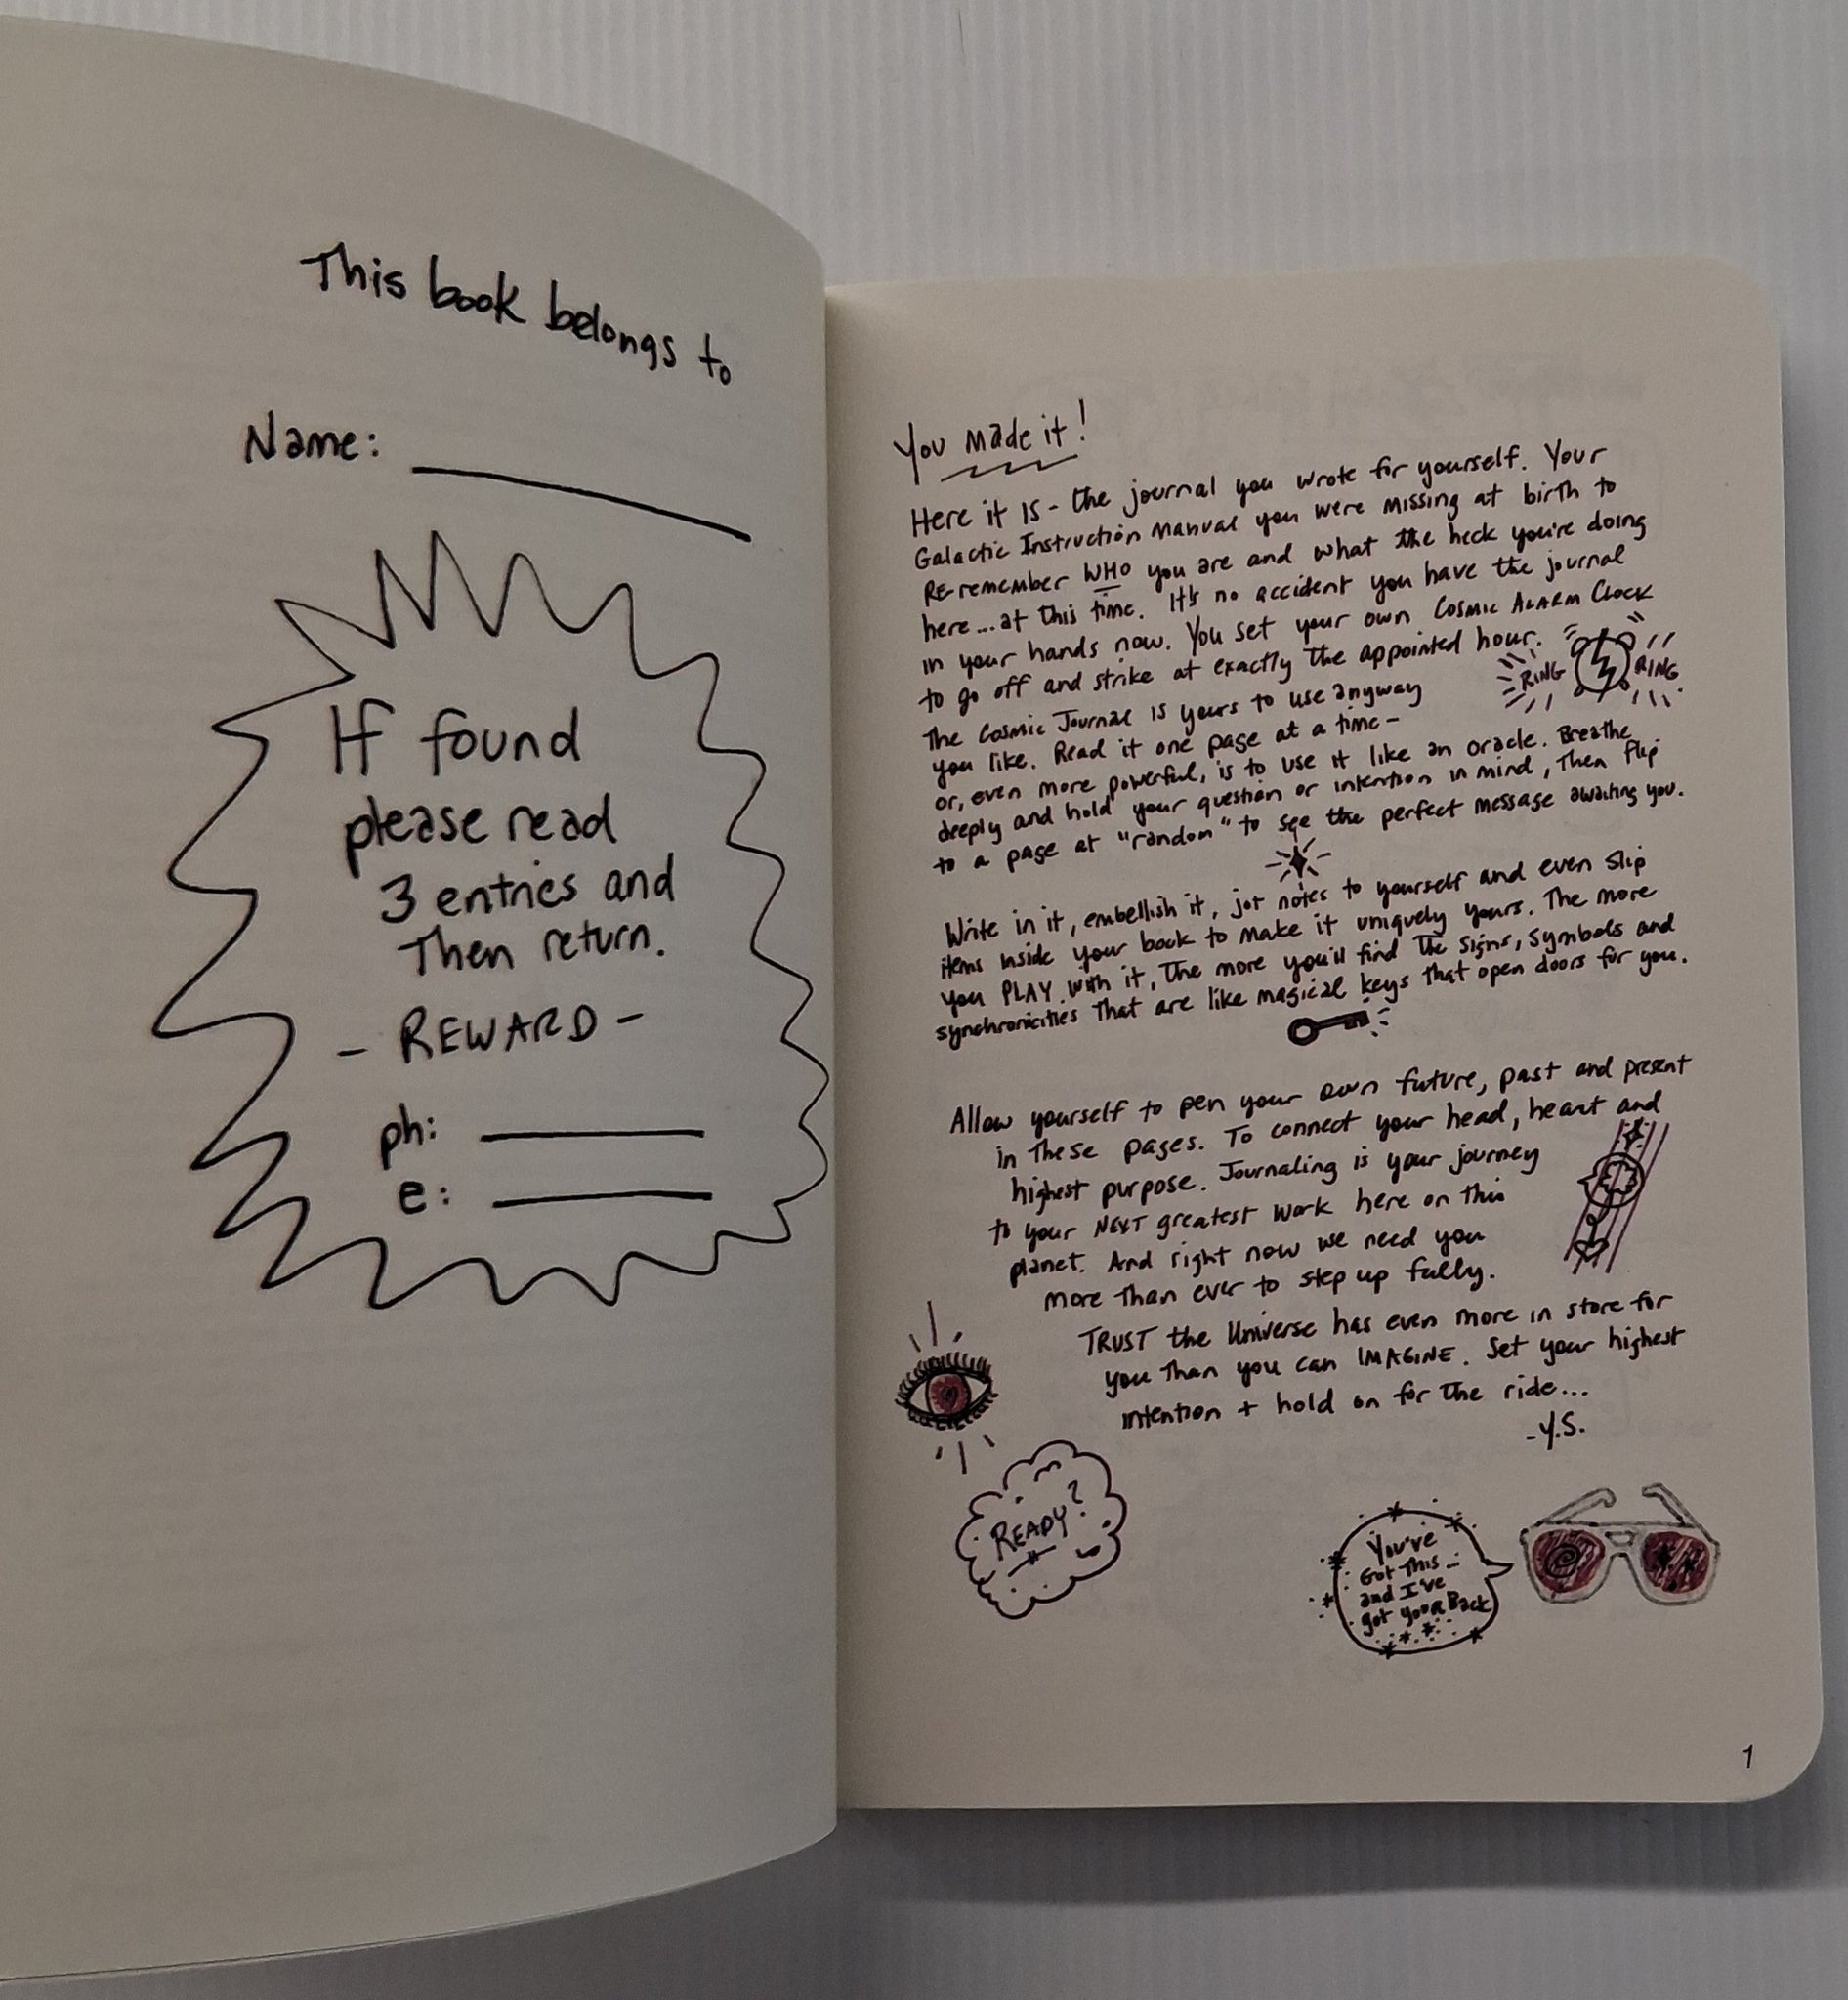 This book belongs to
Name:
If found
please read
3 entries and
Then return.
- REWARD -
ph:
e:
You made it!
Here it is - the journal you wrote for yourself. Your
Galactic Instruction Manual you were missing at birth to
RE-remember WHO you are and what the heck you're doing
here... at this time. It's no accident you have the journal
in your hands now. You set your own Cosmic ALARM Clock
to go off and strike at exactly the appointed hour.
RING RING
The Cosmic Journal is yours to use anyway
you like. Read it one page at a time -
or, even more powerful, is to use it like an oracle. Breathe
deeply and hold your question or intention in mind, Then flip
to a page at "random" to see the perfect message awaiting you.
Write in it, embellish it, jot notes to yourself and even slip
items inside your book to make it uniquely yours. The more
you PLAY with it, The more you'll find The signs, symbols and
synchronicities That are like magical keys that open doors for you.
Allow yourself to pen your own future, past and present
in These pages. To connect your head, heart and
highest purpose. Journaling is your journey
to your NEXT greatest work here on this
planet. And right now we need you
more Than ever to step up fully.
TRUST the Universe has even more in store for
you Than you can IMAGINE. Set your highest
intention + hold on for The ride...
-Y.S.
READY?
You've
Got This...
and I've
got your Back
1